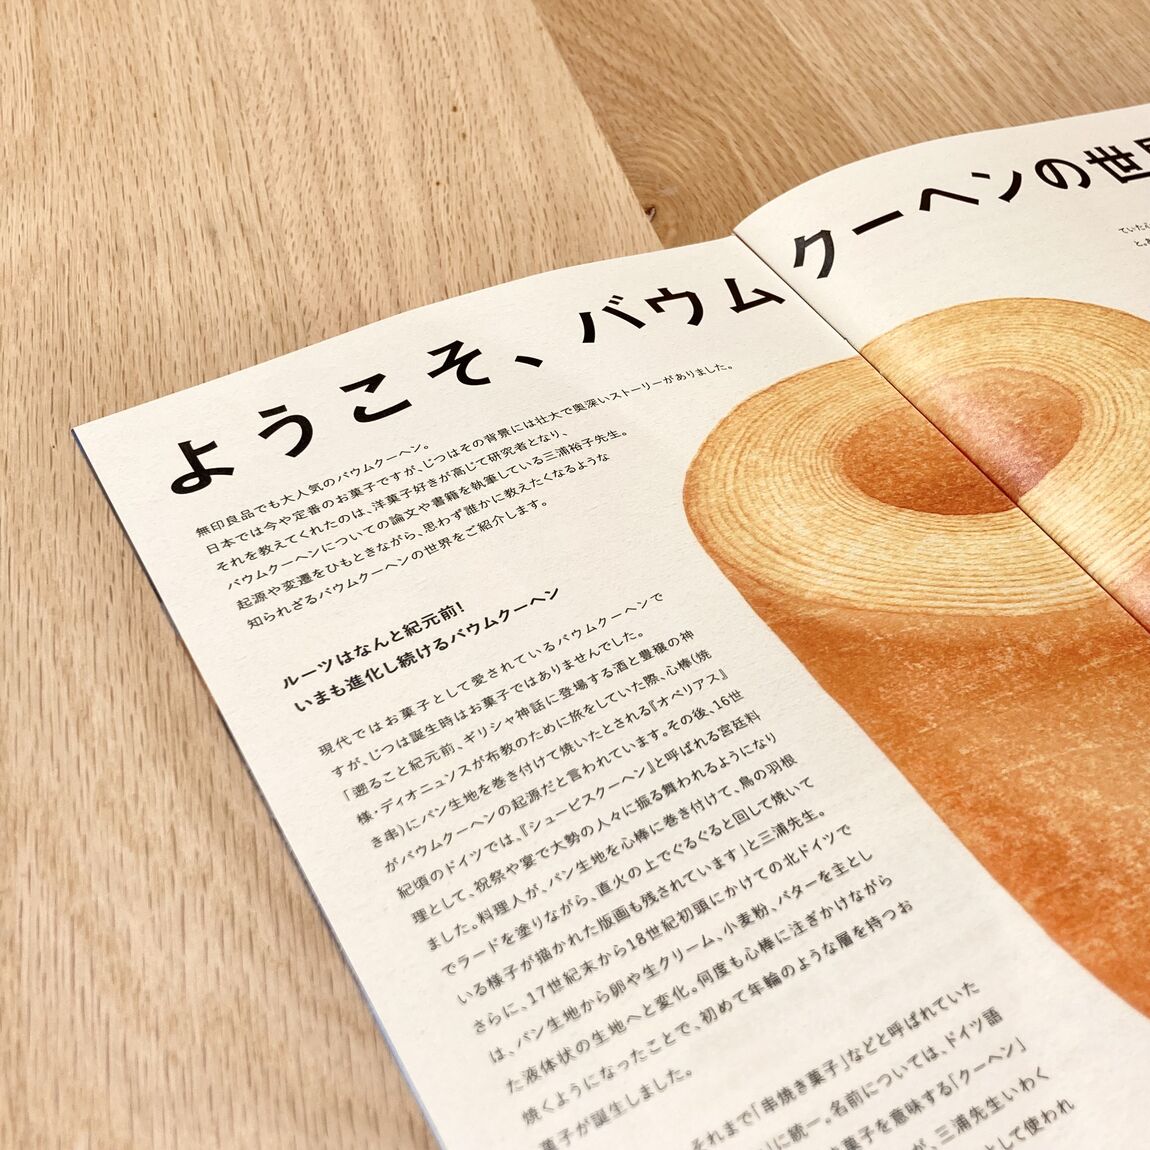 ようこそ、バウムクーヘンの世
無印良品でも大人気のバウムクーヘン。
日本では今や定番のお菓子ですが、じつはその背景には壮大で奥深いストーリーがありました。
それを教えてくれたのは、洋菓子好きが高じて研究者となり、
バウムクーヘンについての論文や書籍を執筆している三浦裕子先生。
起源や変遷をひもときながら、思わず誰かに教えたくなるような
知られざるバウムクーヘンの世界をご紹介します。
ルーツはなんと紀元前!
いまも進化し続けるバウムクーヘン
現代ではお菓子として愛されているバウムクーヘンで
すが、じつは誕生時はお菓子ではありませんでした。
「遡ること紀元前、ギリシャ神話に登場する酒と豊穣の神
様・ディオニュソスが布教のために旅をしていた際、心棒(焼
き串)にパン生地を巻き付けて焼いたとされる『オベリアス』
がバウムクーヘンの起源だと言われています。その後、16世
紀頃のドイツでは、『シュービスクーヘン』と呼ばれる宮廷料
理として、祝祭や宴で大勢の人々に振る舞われるようになり
ました。料理人が、パン生地を心棒に巻き付けて、鳥の羽根
でラードを塗りながら、直火の上でぐるぐると回して焼いて
いる様子が描かれた版画も残されています」と三浦先生。
さらに、17世紀末から18世紀初頭にかけての北ドイツで
は、パン生地から卵や生クリーム、小麦粉、バターを主とし
た液体状の生地へと変化。何度も心棒に注ぎかけながら
焼くようになったことで、初めて年輪のような層を持つお
菓子が誕生しました。
それまで「串焼き菓子」などと呼ばれていた
に統一。名前については、ドイツ語
菓子を意味する「クーヘン」
が、三浦先生いわく
として使われ
ていた
と。